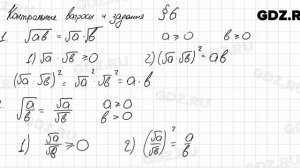 Контрольные вопросы и задания §6
GDZ.RU
1. √ab = √a·√b   a ≥ 0   b ≥ 0
1) √a·√b ≥ 0   2) (√a·√b)² = ab
(√a·√b)² = √a²·√b² = a·b
√a/b = √a/√b   a ≥ 0   b > 0
1) √a/√b ≥ 0   2) (√a/√b)² = a/b